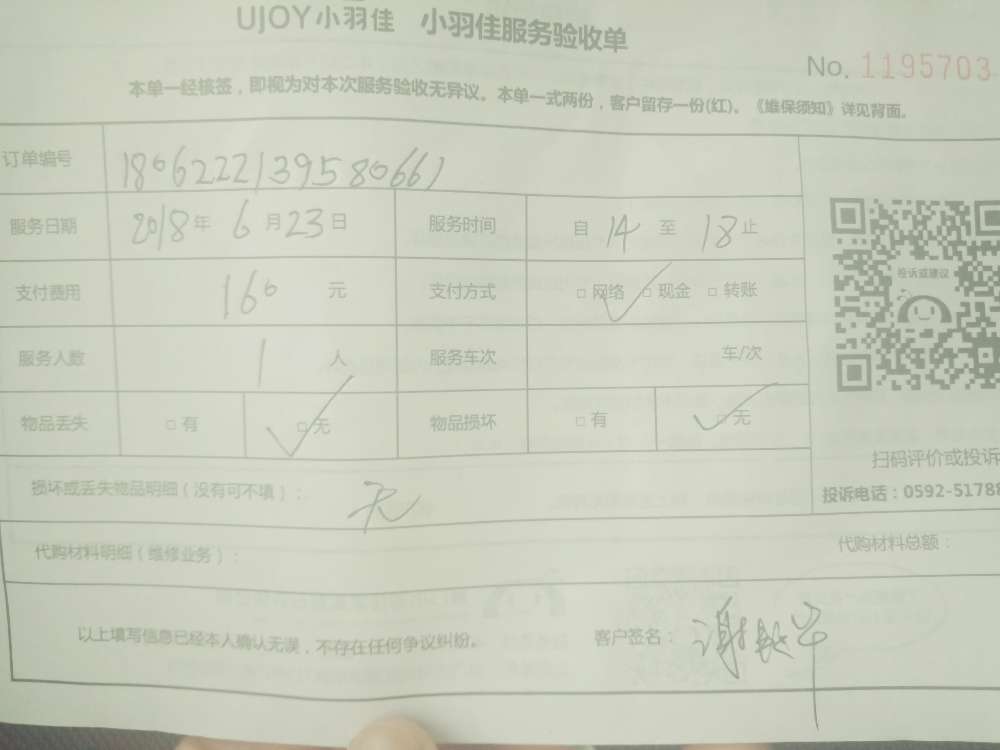 UJOY小羽佳 小羽佳服务验收单
No. 1195703
本单一经核签，即视为对本次服务验收无异议。本单一式两份，客户留存一份(红)。《维保须知》详见背面。
订单编号 1806222139580661
服务日期 2018年 6月23日 服务时间 自 14 至 18止
支付费用 160 元 支付方式 □网络 □现金 □转账
服务人数 1 人 服务车次 车/次
物品丢失 □有 □无 物品损坏 □有 □无
投诉或建议
扫码评价或投诉
损坏或丢失物品明细（没有可不填）： 无
投诉电话：0592-51788
代购材料明细（维修业务）： 代购材料总额：
以上填写信息已经本人确认无误，不存在任何争议纠纷。 客户签名： 谢